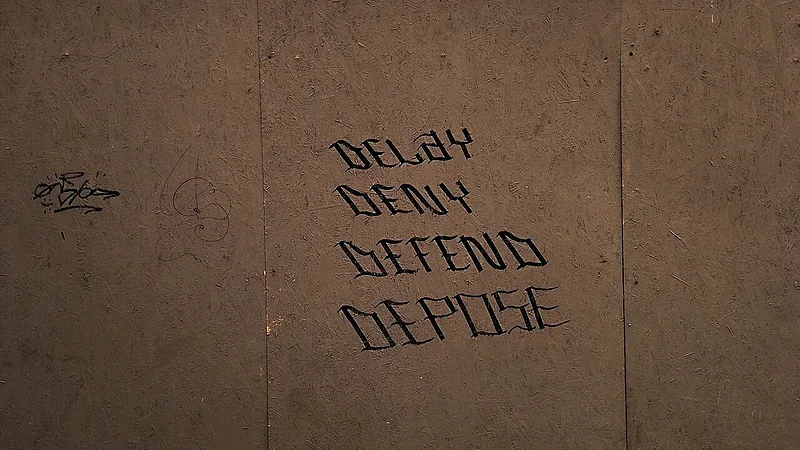 DELAY
DENY
DEFEND
DEPOSE